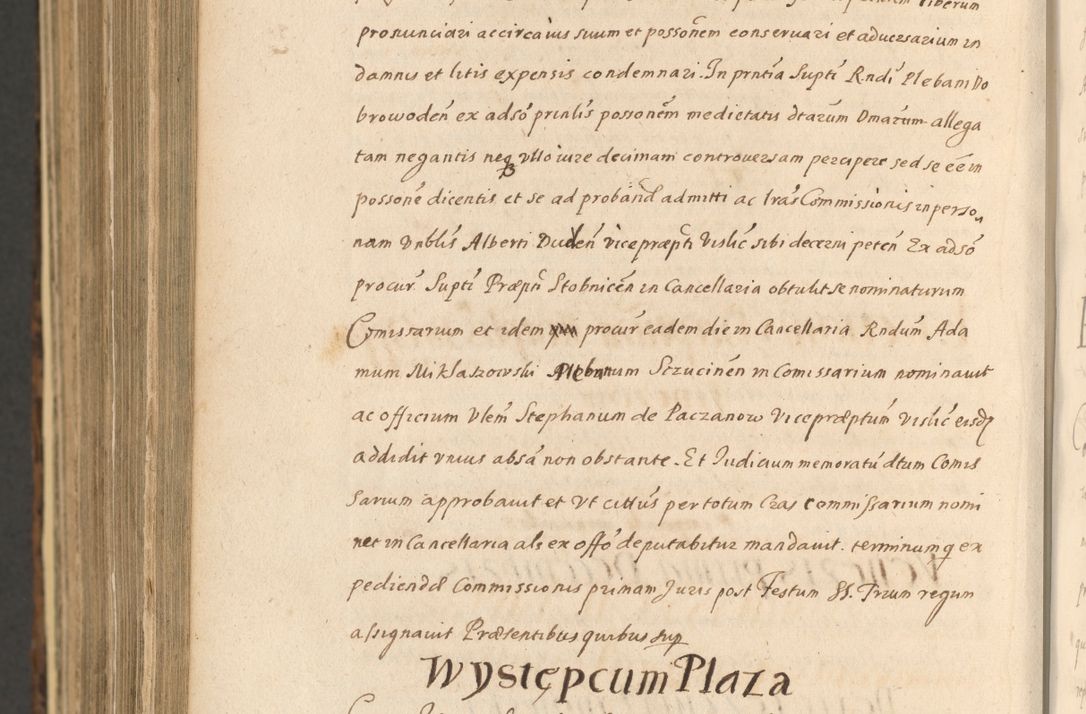 pronunciari ac circa ius suum et possoñem conseruari et aduersarium in
damnis et litis expensis condemnari. In prntia Supti Rndi Plebani Do
browoden ex adso prinlis possonem medietatis dtarum Dmarum allega
tam negantis neq vllo iure decimam controuersam percipere sed se eē in
possone dicentis et se ad proband admitti ac lras Commissionis in perso
nam Vnblis Alberti Duden vicepræpti Vislic sibi decerni peten Ex adso
procur Supti Præpti Stobnicen in Cancellaria obtulit se nominaturum
Comissarium et idem procur eadem die in Cancellaria Rndum Ada
mum Miklaszowski Plebanum Sczucinen in Comissarium nominauit
ac officium Vlem Stephanum de Paczanow Vicepræptum Vislic eisdz
addidit vnius absa non obstante. Et Iudicium memoratu dtum Comis
sarium approbauit et Vt citius per totum Cras commissarium nomi
net in Cancellaria als ex offo deputabitur mandauit. terminumq ex
pediendæ Commissionis primam Juris post Festum SS. Trium regum
assignauit Præsentibus quibus sup
Występ cum Plaza